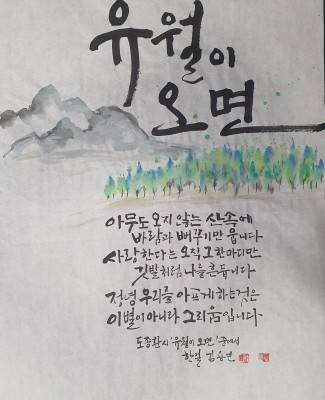 유월이
오면
아무도 오지 않는 산속에
바람과 뻐꾸기만 웁니다
사랑한다는 오직 그 한마디만
깃발처럼 나를 흔듭니다
정녕 우리를 아프게 하는것은
이별이 아니라 그리움입니다
도종환 시 '유월이 오면' 중에서
한얼